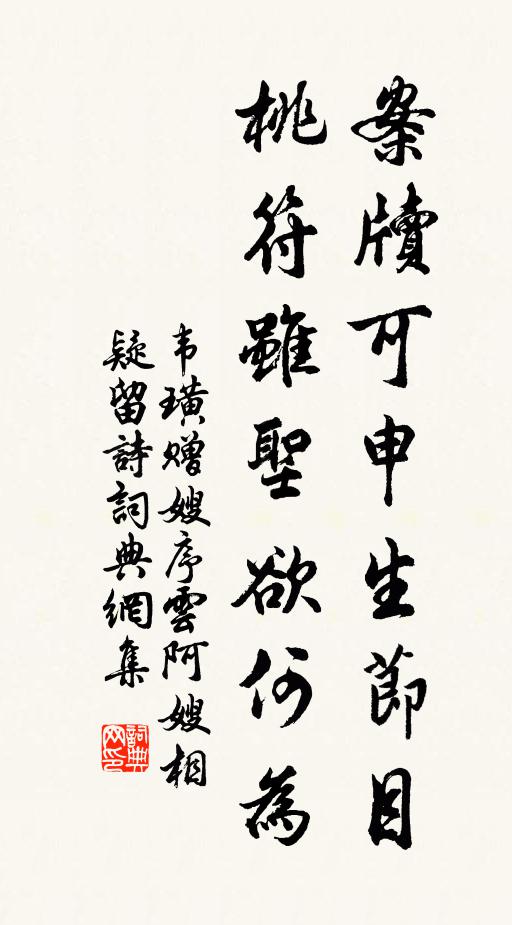 案牘可申生節目
桃符雖聖欲何為
韦璜赠嫂序雲阿嫂相
疑留詩詞典網集
詞典网印